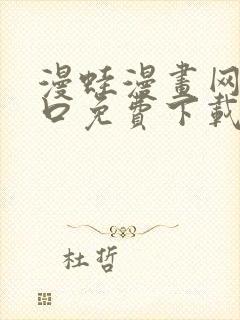 漫蛙漫畫网
口免費下載
杜哲